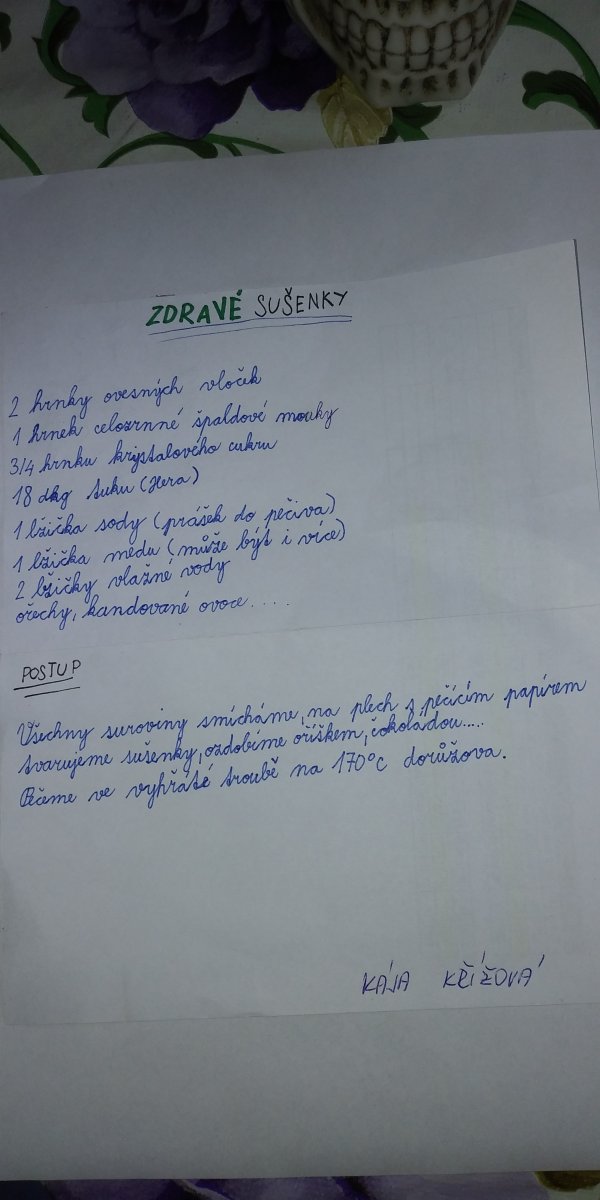 ZDRAVÉ SUŠENKY
2 hrnky ovesných vloček
1 hrnek celozrnné špaldové mouky
3/4 hrnku krystalového cukru
18 dkg tuku (Hera)
1 lžička sody (prášek do pečiva)
1 lžička medu (může být i více)
2 lžičky vlažné vody
ořechy, kandované ovoce....
POSTUP
Všechny suroviny smícháme, na plech s pečícím papírem
tvarujeme sušenky, ozdobíme oříškem, čokoládou.....
Pečeme ve vyhřáté troubě na 170°C dorůžova.
KÁJA KŘÍŽOVÁ